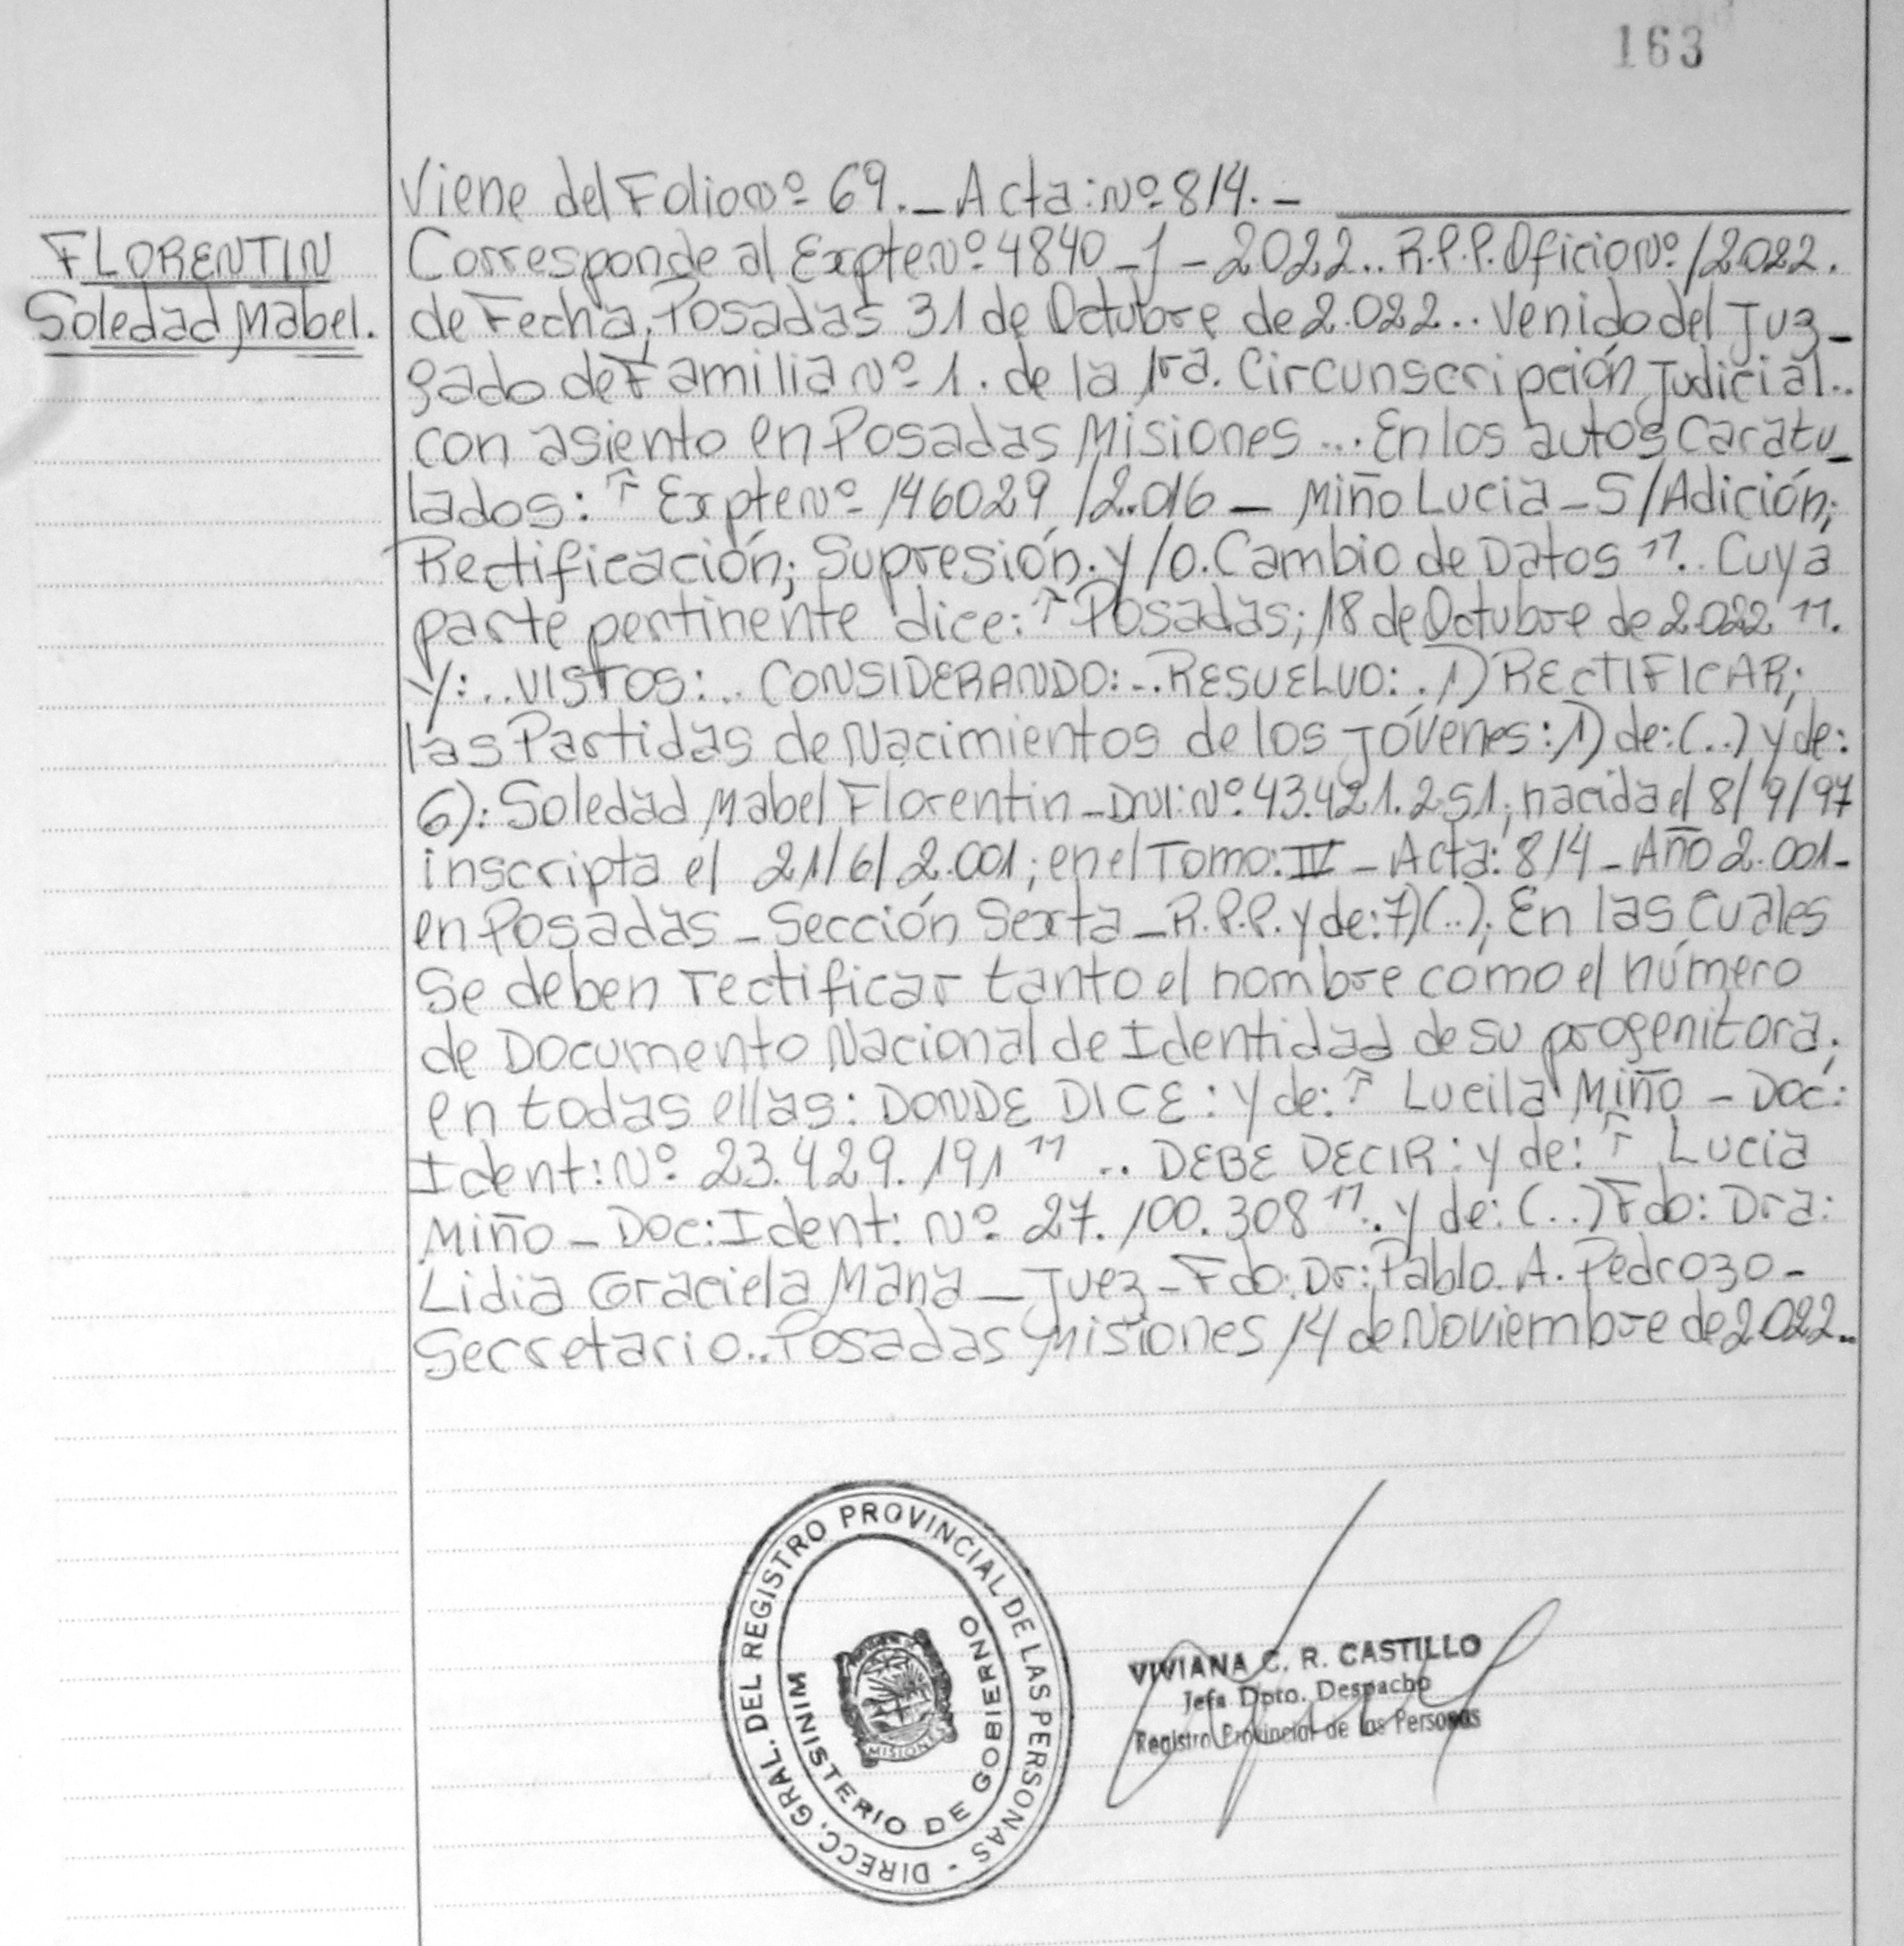 163
FLORENTIN
Soledad Mabel.
Viene del Folio Nº 69. _ Acta: Nº 814. _
Corresponde al Expte Nº 4840 _ J _ 2022.. R.P.P. Oficio Nº /2022.
de Fecha, Posadas 31 de Octubre de 2.022.. Venido del Juz_
gado de Familia Nº 1. de la 1ra. Circunscripción Judicial..
con asiento en Posadas Misiones ... En los autos Caratu_
lados: " Expte Nº 146029 /2.016 _ Miño Lucia _ S/Adición;
Rectificación; Supresión. y/o. Cambio de Datos ". Cuya
parte pertinente dice: " Posadas; 18 de Octubre de 2.022 ".
Y: .. VISTOS: .. CONSIDERANDO: .. RESUELVO: . 1) RECTIFICAR;
las Partidas de Nacimientos de los Jóvenes: 1) de: (..) y de:
6): Soledad Mabel Florentin _ DNI: Nº 43.421.251; nacida el 8/9/97
inscripta el 21/6/2.001; en el Tomo: IV _ Acta: 814 _ Año 2.001 _
en Posadas _ Sección Sexta _ R.P.P. y de: 7) (..); En las cuales
Se deben rectificar tanto el nombre como el número
de Documento Nacional de Identidad de su progenitora;
en todas ellas: DONDE DICE: y de: " Lucila Miño _ Doc:
Ident: Nº 23.429.191 " .. DEBE DECIR: y de: " Lucia
Miño _ Doc: Ident: Nº 27.100.308 ". y de: (..) Fdo: Dra:
Lidia Graciela Mana _ Juez _ Fdo: Dr: Pablo. A. Pedrozo _
Secretario.. Posadas Misiones 14 de Noviembre de 2.022..
DIRECC. GRAL. DEL REGISTRO PROVINCIAL DE LAS PERSONAS -
MINISTERIO DE GOBIERNO
MISIONES
VIVIANA C. R. CASTILLO
Jefa Dpto. Despacho
Registro Provincial de las Personas